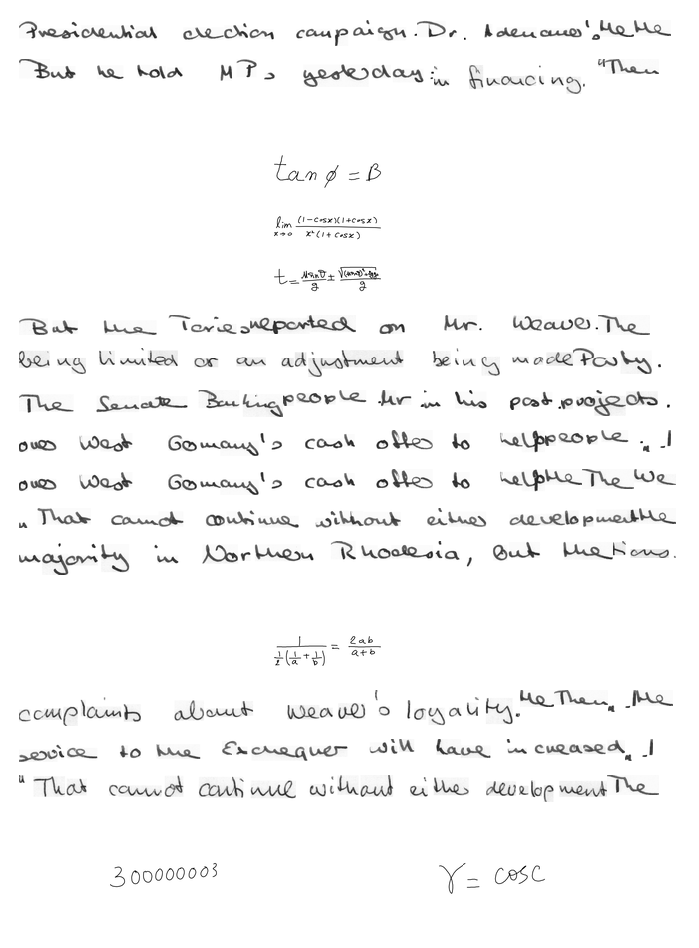 Presidential election campaign. Dr. Adenauer's He He
But he told MPs yesterday: in financing. "Then
tan ϕ = B
lim x→0 (1-cosx)(1+cosx) / x²(1+cosx)
t =
But the Tories reported on Mr. Weaver. The
being limited or an adjustment being made Party.
The Senate Banking people Mr in his past projects.
over West Germany's cash offer to help people. " I
over West Germany's cash offer to help He The We
"That cannot continue without either development the
majority in Northern Rhodesia, but the tions.
1 / ½(1/a + 1/b) = 2ab / a+b
complaints about Weaver's loyality. He Then " He
service to the Exchequer will have increased " I
"That cannot continue without either development The
300000003 γ = cosc